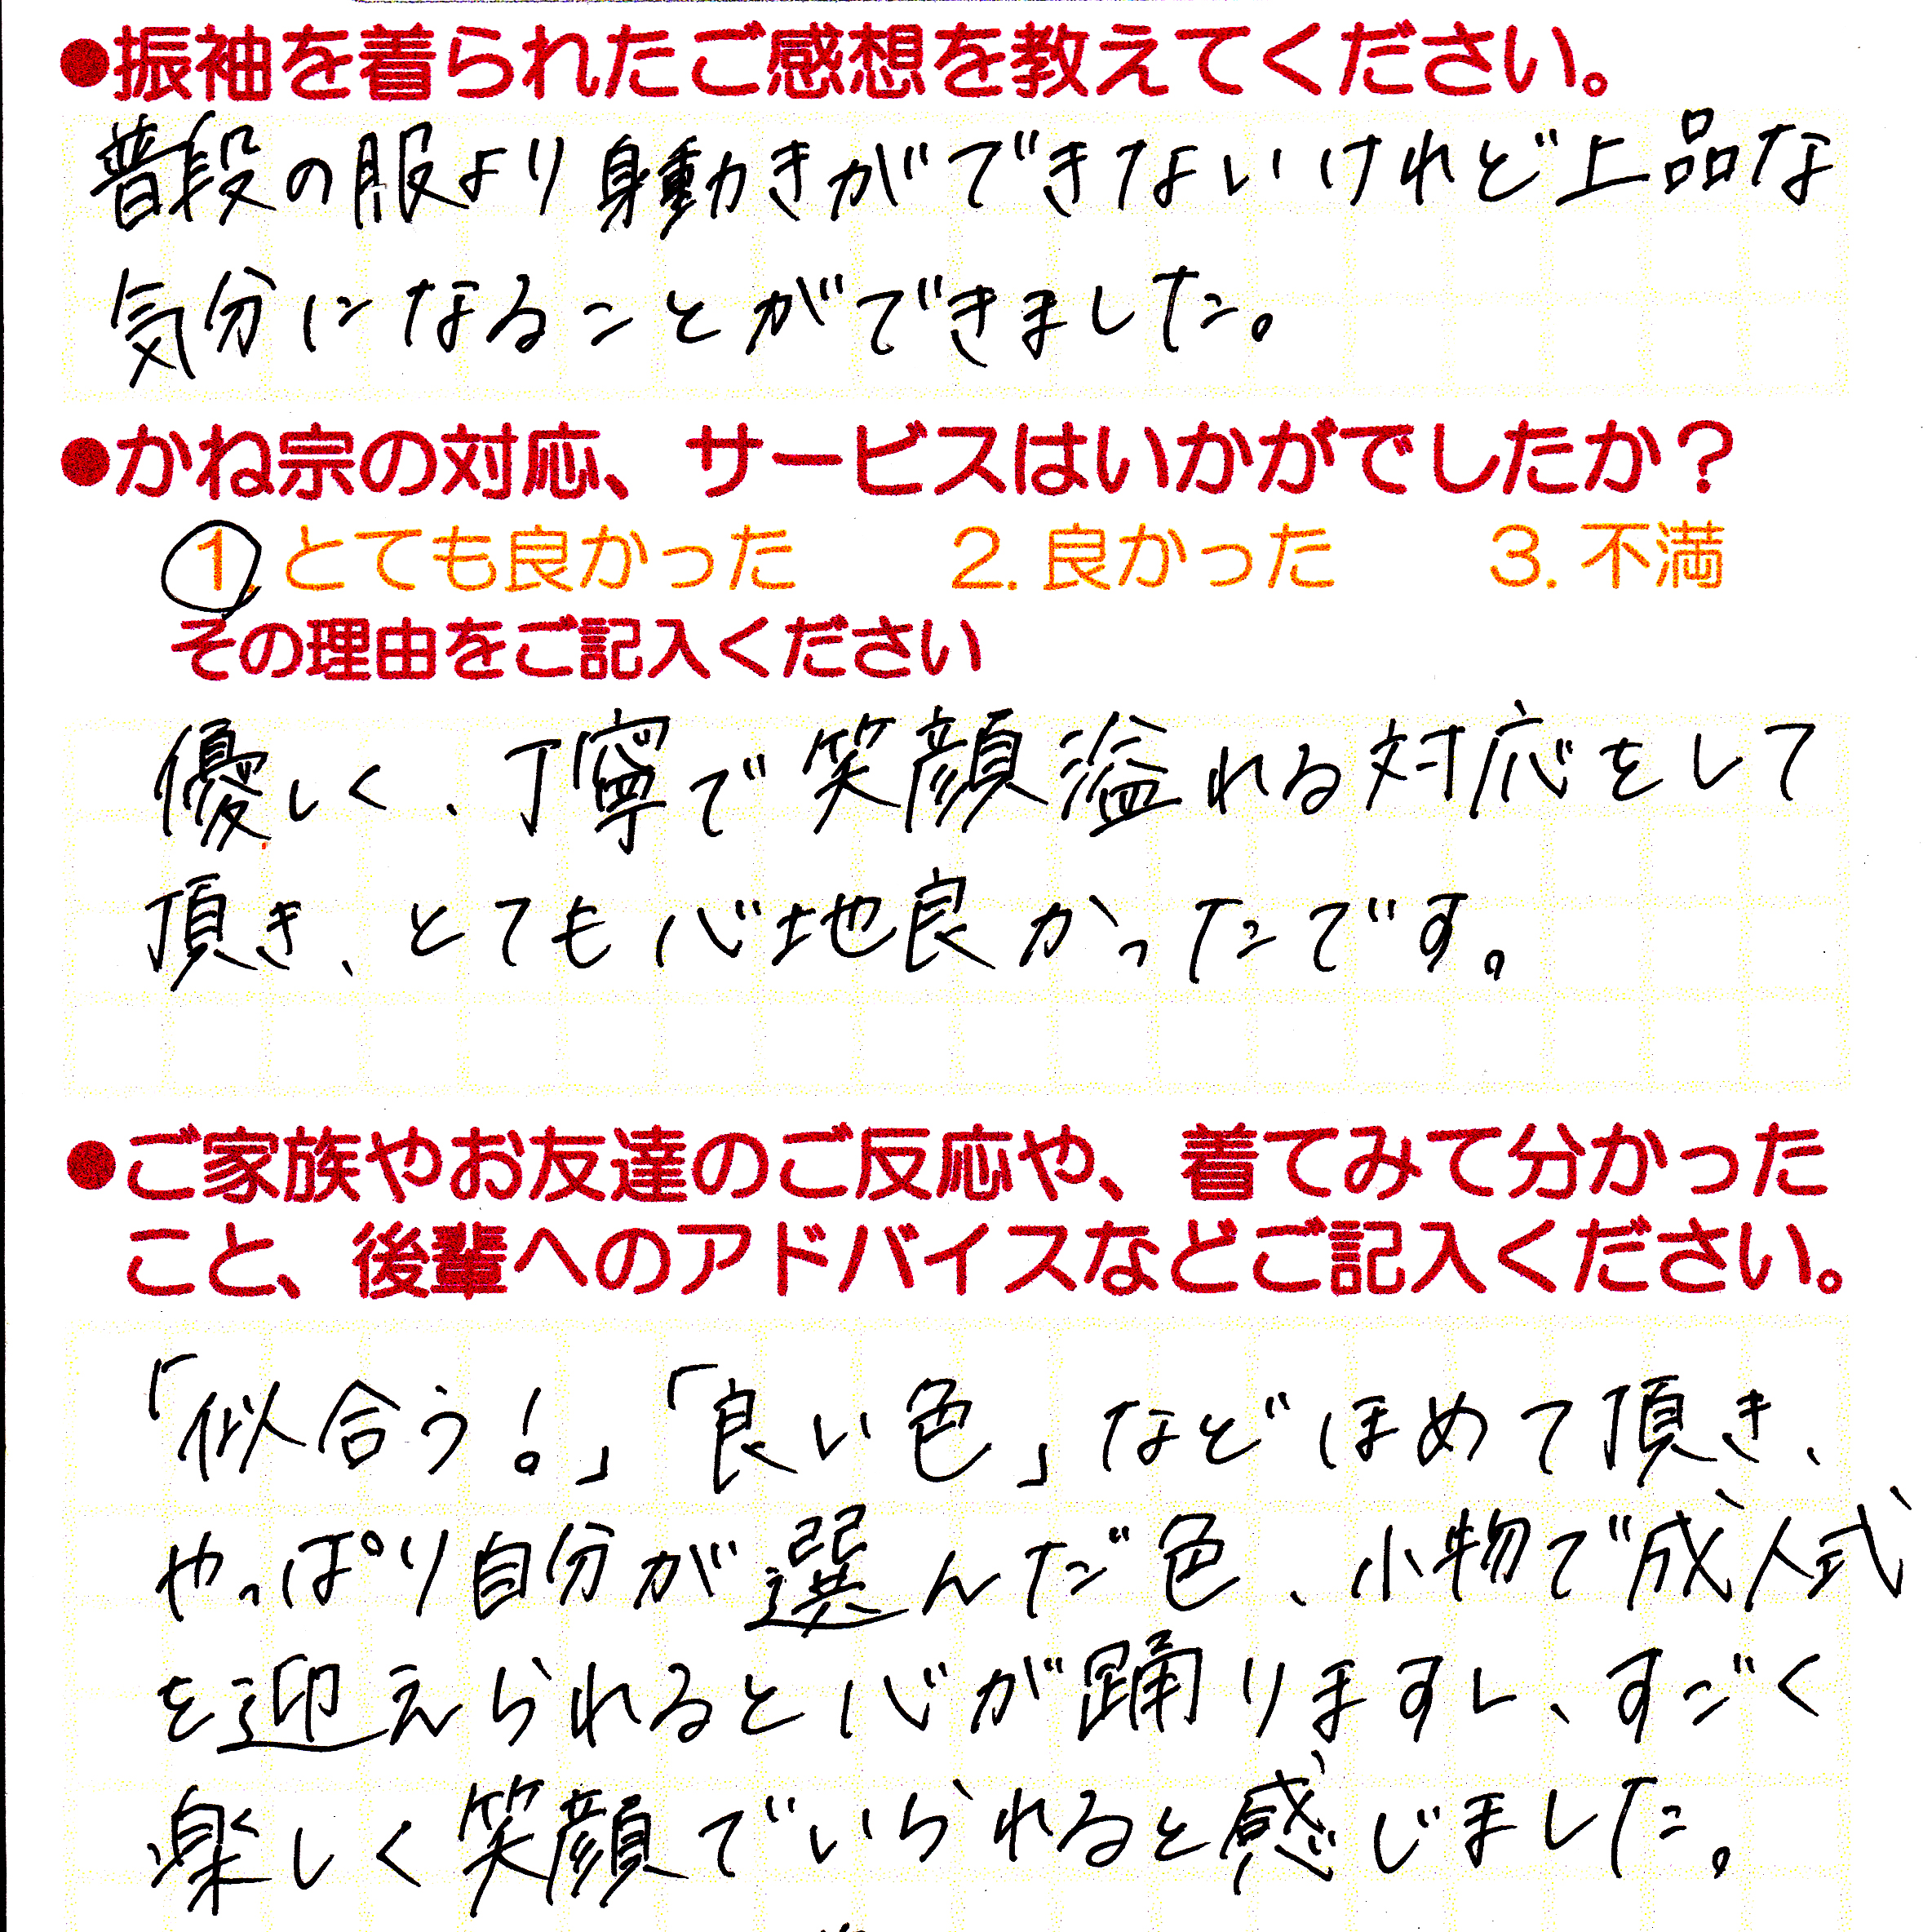 ●振袖を着られたご感想を教えてください。
普段の服より身動きができないけれど上品な
気分になることができました。
●かね宗の対応、サービスはいかがでしたか？
1. とても良かった 2. 良かった 3. 不満
その理由をご記入ください
優しく、丁寧で笑顔溢れる対応をして
頂き、とても心地良かったです。
●ご家族やお友達のご反応や、着てみて分かった
こと、後輩へのアドバイスなどご記入ください。
「似合う!」「良い色」などほめて頂き、
やっぱり自分が選んだ色、小物で成人式
を迎えられると心が踊りますし、すごく
楽しく笑顔でいられると感じました。